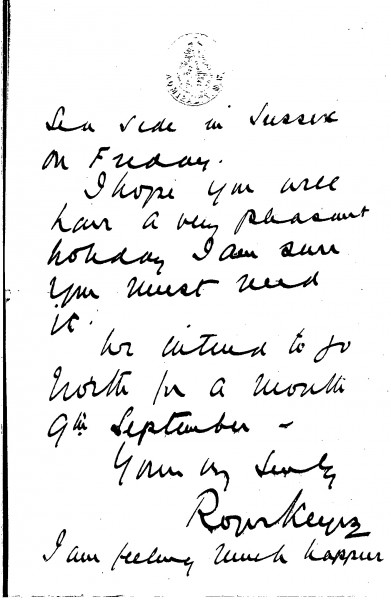 Sea side in Sussex
on Friday.
I hope you will
have a very pleasant
holiday I am sure
you must need
it.
We intend to go
North for a month
9th September -
Yours very Sincly
Roger Keyes
I am feeling much happier